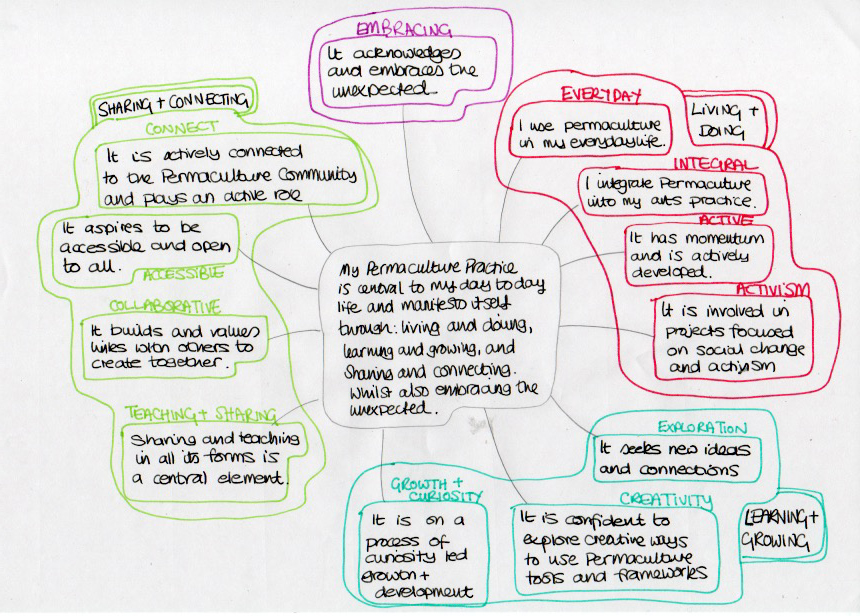 EMBRACING
It acknowledges
and embraces the
unexpected.
SHARING + CONNECTING
CONNECT
It is actively connected
to the Permaculture Community
and plays an active role
It aspires to be
accessible and open
to all.
ACCESSIBLE
COLLABORATIVE
It builds and values
links with others to
create together.
TEACHING + SHARING
Sharing and teaching
in all its forms is
a central element.
My Permaculture Practice
is central to my day to day
life and manifests itself
through: living and doing,
learning and growing, and
Sharing and connecting.
Whilst also embracing the
unexpected.
LIVING +
DOING
EVERYDAY
I use permaculture
in my everyday life.
INTEGRAL
I integrate Permacuture
into my arts practice.
ACTIVE
It has momentum
and is actively
developed.
ACTIVISM
It is involved in
projects focused
on social change
and activism
EXPLORATION
It seeks new ideas
and connections
GROWTH +
CURIOSITY
It is on a
process of
curiosity led
growth +
development
CREATIVITY
It is confident to
explore creative ways
to use Permaculture
tools and frameworks
LEARNING +
GROWING